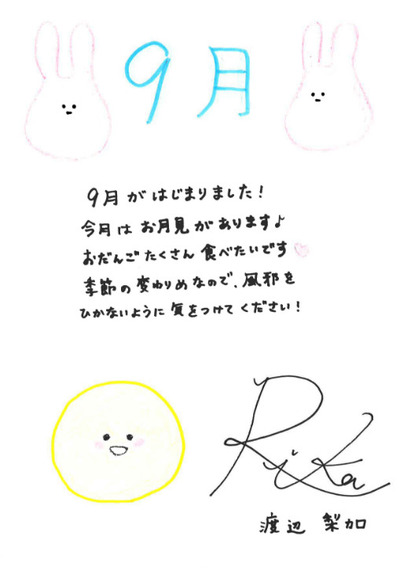 9月
9月がはじまりました!
今月はお月見があります♪
おだんごたくさん食べたいです♡
季節の変わりめなので、風邪を
ひかないように気をつけてください!
Rika
渡辺 梨加